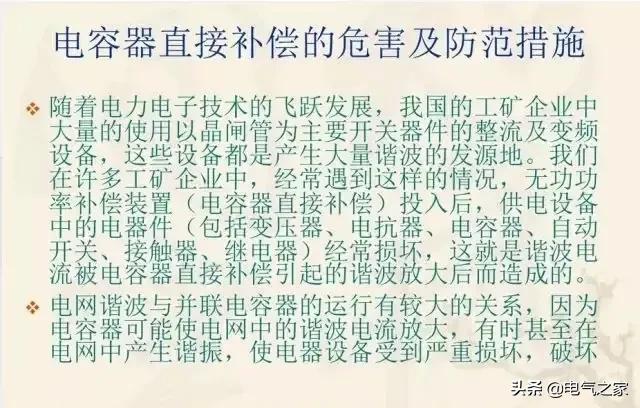 电容器直接补偿的危害及防范措施
随着电力电子技术的飞跃发展，我国的工矿企业中
大量的使用以晶闸管为主要开关器件的整流及变频
设备，这些设备都是产生大量谐波的发源地。我们
在许多工矿企业中，经常遇到这样的情况，无功功
率补偿装置（电容器直接补偿）投入后，供电设备
中的电器件（包括变压器、电抗器、电容器、自动
开关、接触器、继电器）经常损坏，这就是谐波电
流被电容器直接补偿引起的谐波放大后而造成的。
电网谐波与并联电容器的运行有较大的关系，因为
电容器可能使电网中的谐波电流放大，有时甚至在
电网中产生谐振，使电器设备受到严重损坏，破坏
头条 @电气之家